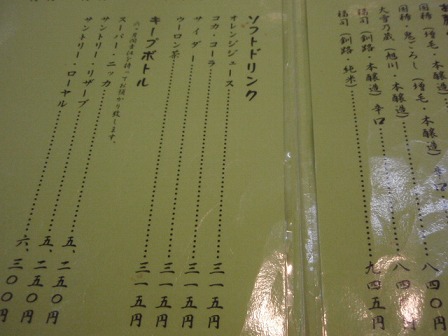 国稀・鬼ごろし（増毛・本醸造）辛口………八四〇円
大雪乃蔵（旭川・本醸造）………八四
福司（釧路・本醸造）辛口
福司（釧路・純米）………九四五円
ソフトドリンク
オレンジジュース………三一五円
コカ・コーラ………三一五円
サイダー………三一五円
ウーロン茶………三一五円
キープボトル
六ヶ月間責任を持ってお預かり致します。
スーパー・ニッカ………五、二五〇円
サントリー・リザーブ………五、二五〇円
サントリー・ローヤル………六、三〇〇円